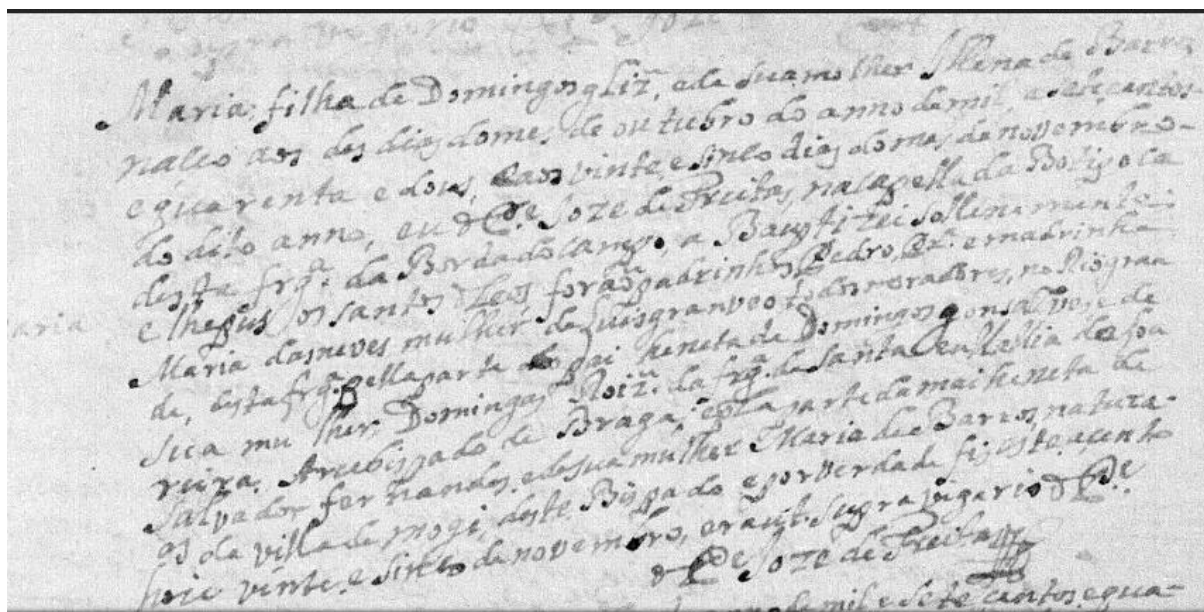 Maria, filha de Domingos Glz̃, e de sua molher Illena de Barros
naceo aos des dias do mes, de outubro do anno de mil, a sete centos
e quarenta e dous, e aos vinte, e sinco dias do mes de novembro
do dito anno, eu o Pe. Joze de Freitas, na capella da
desta frgª. da Borda do campo, a Bauptizei sollenemente
e lhe pus os santos oleos forão padrinhos Pedro, e madrinha
Maria das neves mulher de Luis todos moradores, no Riogran
de, desta frgª. pella parte do pai he neta de Domingos gonsalves e de
sua mulher Domingas Roiz̃. da frgª. de santa
Arcebispado de Braga, e pella parte da mai he neta de
Salvador fernandes. e de sua mulher Maria de Barros, natura-
es da villa de mogi, deste Bispado e por verdade fiz este acento
hoie vinte. e sinco de novembro, era ut. supra vigario o Pe.
o Pe Joze de Freitas
de mil e sete centos e qua-
aria